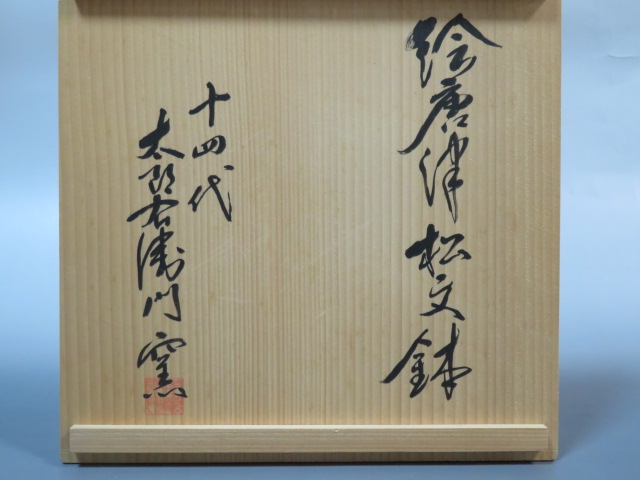 絵唐津松文鉢
十四代
太郎右衛門窯